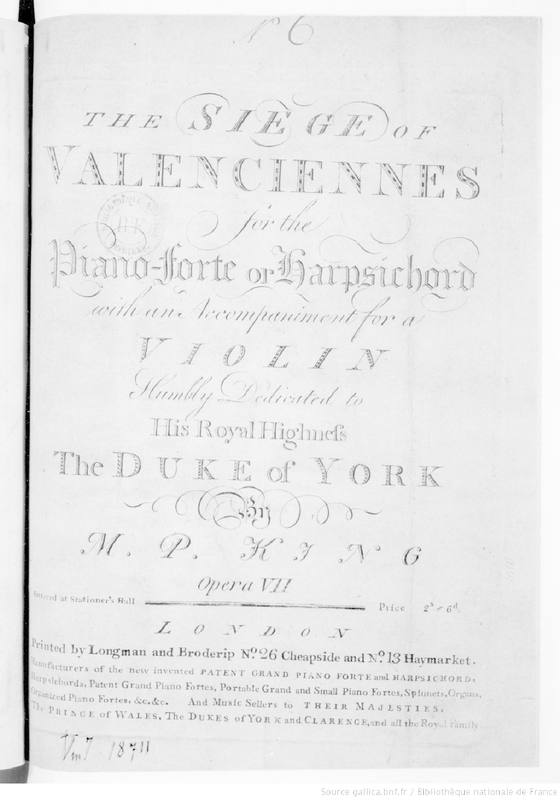 No 6
THE SIEGE OF
VALENCIENNES
for the
Piano-Forte or Harpsichord
with an Accompaniment for a
VIOLIN
Humbly Dedicated to
His Royal Highneſs
The DUKE of YORK
By
M. P. KING
Opera VII
Entered at Stationer's Hall
Price 2s.. 6d.
LONDON
Printed by Longman and Broderip No. 26 Cheapside and No. 13 Haymarket.
Manufacturers of the new invented PATENT GRAND PIANO FORTE and HARPSICHORD,
Harpsichords, Patent Grand Piano Fortes, Portable Grand and Small Piano Fortes, Spinnets, Organs,
Organized Piano Fortes, &c. &c. And Music Sellers to THEIR MAJESTIES,
The PRINCE of WALES, The DUKES of YORK and CLARENCE, and all the Royal Family
Vm7 18711
Source gallica.bnf.fr / Bibliothèque nationale de France